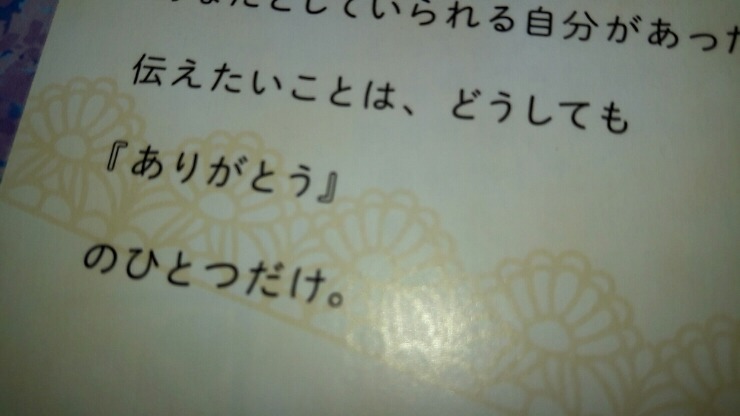 していられる自分があっ
伝えたいことは、どうしても
『ありがとう』
のひとつだけ。